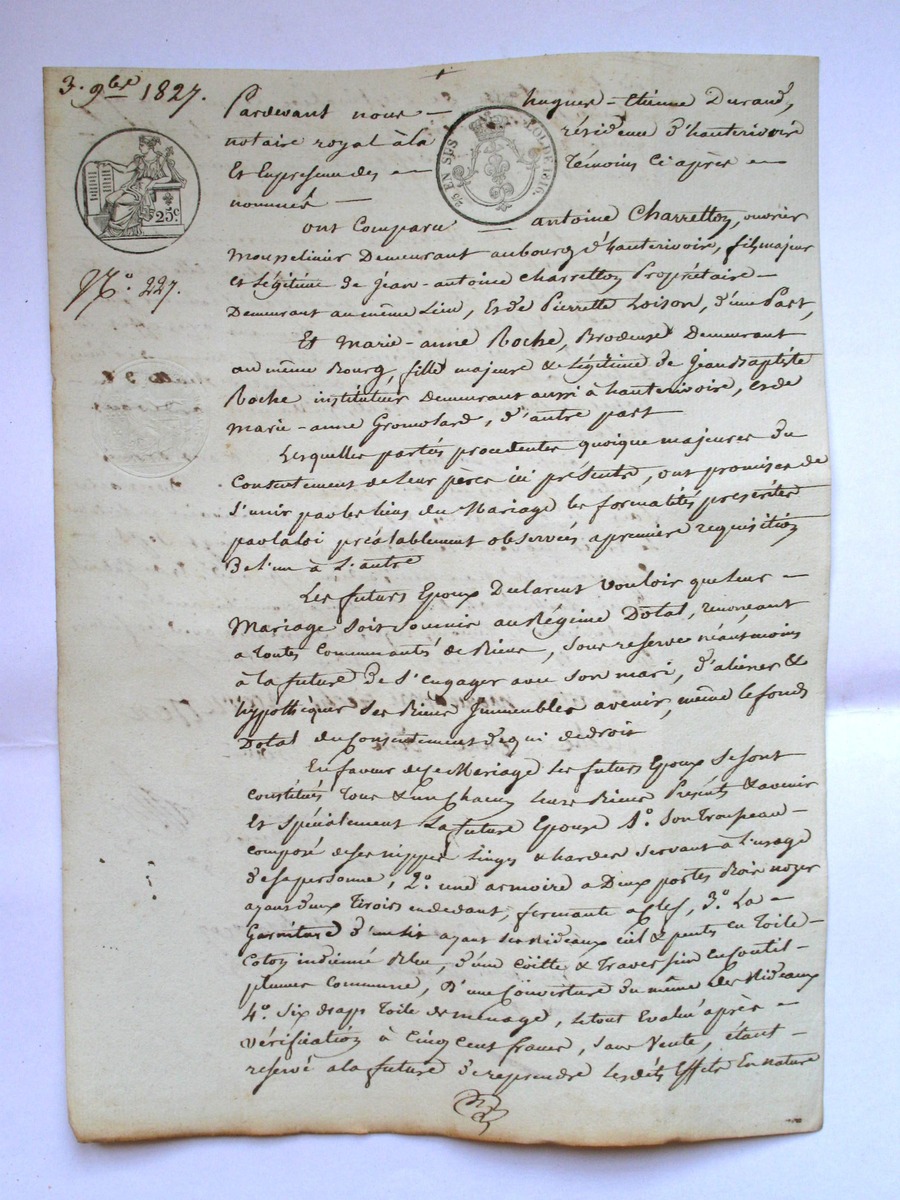 3. 9bre 1827.
25c
No. 227.
Pardevant nous — hugues-Etienne Durand,
notaire royal à la résidence d'hauterivoire
Et En presence des — témoins ci après —
nommés —
25 EN SUS LOI DE 1816.
ont Comparu — antoine Charretton, ouvrier
Mousselinier Demeurant au bourg d'hauterivoire, fils majeur
et Légitime de Jean-antoine Charretton Propriétaire —
Demeurant au même Lieu, Et de Pierrette Loison, d'une Part,
Et marie-anne Roche, Brodeuse Demeurant
au même Bourg, fille majeure & Légitime de Jean Baptiste
Roche instituteur Demeurant aussi à hauterivoire, et de
marie-anne Gromolard, d'autre part
Lesquelles partés procedentes quoique majeures du
Consentement de leur pères ici présents, ont promises de
s'unir par les liens du Mariage les formalités prescrites
par la loi préalablement observés a premiere requisition
De l'un à L'autre
Les futurs Epoux Declarent Vouloir que leur —
Mariage soit soumis au Régime Dotal, renonçant
a toutes Communautés de Biens, sous reserve néantmoins
à la future de s'engager avec son mari, d'aliéner &
hypothéquer ses Biens Jmmeubles avenir, même le fonds
Dotal du Consentement de qui de droit
En faveur de ce Mariage les futurs Epoux se sont
constitués tous & un Chacun leurs Biens Présents & avenir
Et spécialement La future Epouse 1o. Son Troupeau —
composé de ses nippes Linges & hardes servant à l'usage
de sa personne, 2o. une armoire a Deux portes Bois noyer
ayant deux Tiroirs en dedant, fermante a clef, 3o. La —
Garniture d'un lit ayant ses Rideaux ciel & pents en Toile —
Coton indienné Bleu, d'une Coitte & Traversin en Coutil —
plumes Commune, D'une Couverture du même des Rideaux
4o. Six draps Toile de menage, le tout Evalué après —
vérification à Cinq cent francs, sans Vente, étant —
reservé a la future de reprendre lesdits Effets En nature